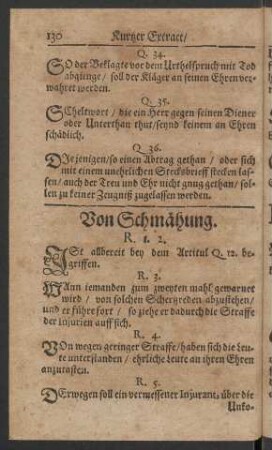 130 Kurtzer Extract/
Q. 34.
SO der Beklagte vor dem Urthelspruch mit Tod
abgienge / soll der Kläger an seinen Ehren ver-
wahret werden.
Q. 35.
SCheltwort / die ein Herr gegen seinen Diener
oder Unterthan thut/ seynd keinem an Ehren
schädlich.
Q. 36.
DIejenigen/so einen Abtrag gethan / oder sich
mit einem unehrlichen Steckbrieff stecken las-
sen/ auch der Treu und Ehr nicht gnug gethan/ sol-
len zu keiner Zeugniß zugelassen werden.
Von Schmähung.
R. 1. 2.
ISt allbereit bey dem Articul Q. 12. be-
griffen.
R. 3.
WAnn jemanden zum zweyten mahl gewarnet
wird / von solchen Schertzreden abzustehen/
und er führe fort / so ziehe er dadurch die Straffe
der Injurien auff sich.
R. 4.
VOn wegen geringer Straffe/haben sich die Leu-
te unterstanden / ehrliche Leute an ihren Ehren
anzutasten.
R. 5.
DErwegen soll ein vermessener Injurant, über die
Unko-